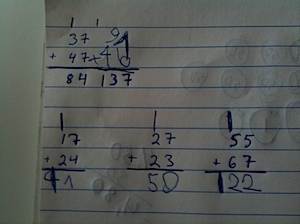 1 1
37 91
+ 47 + 46
84 137
1 1 1
17 27 55
+ 24 + 23 + 67
41 50 122